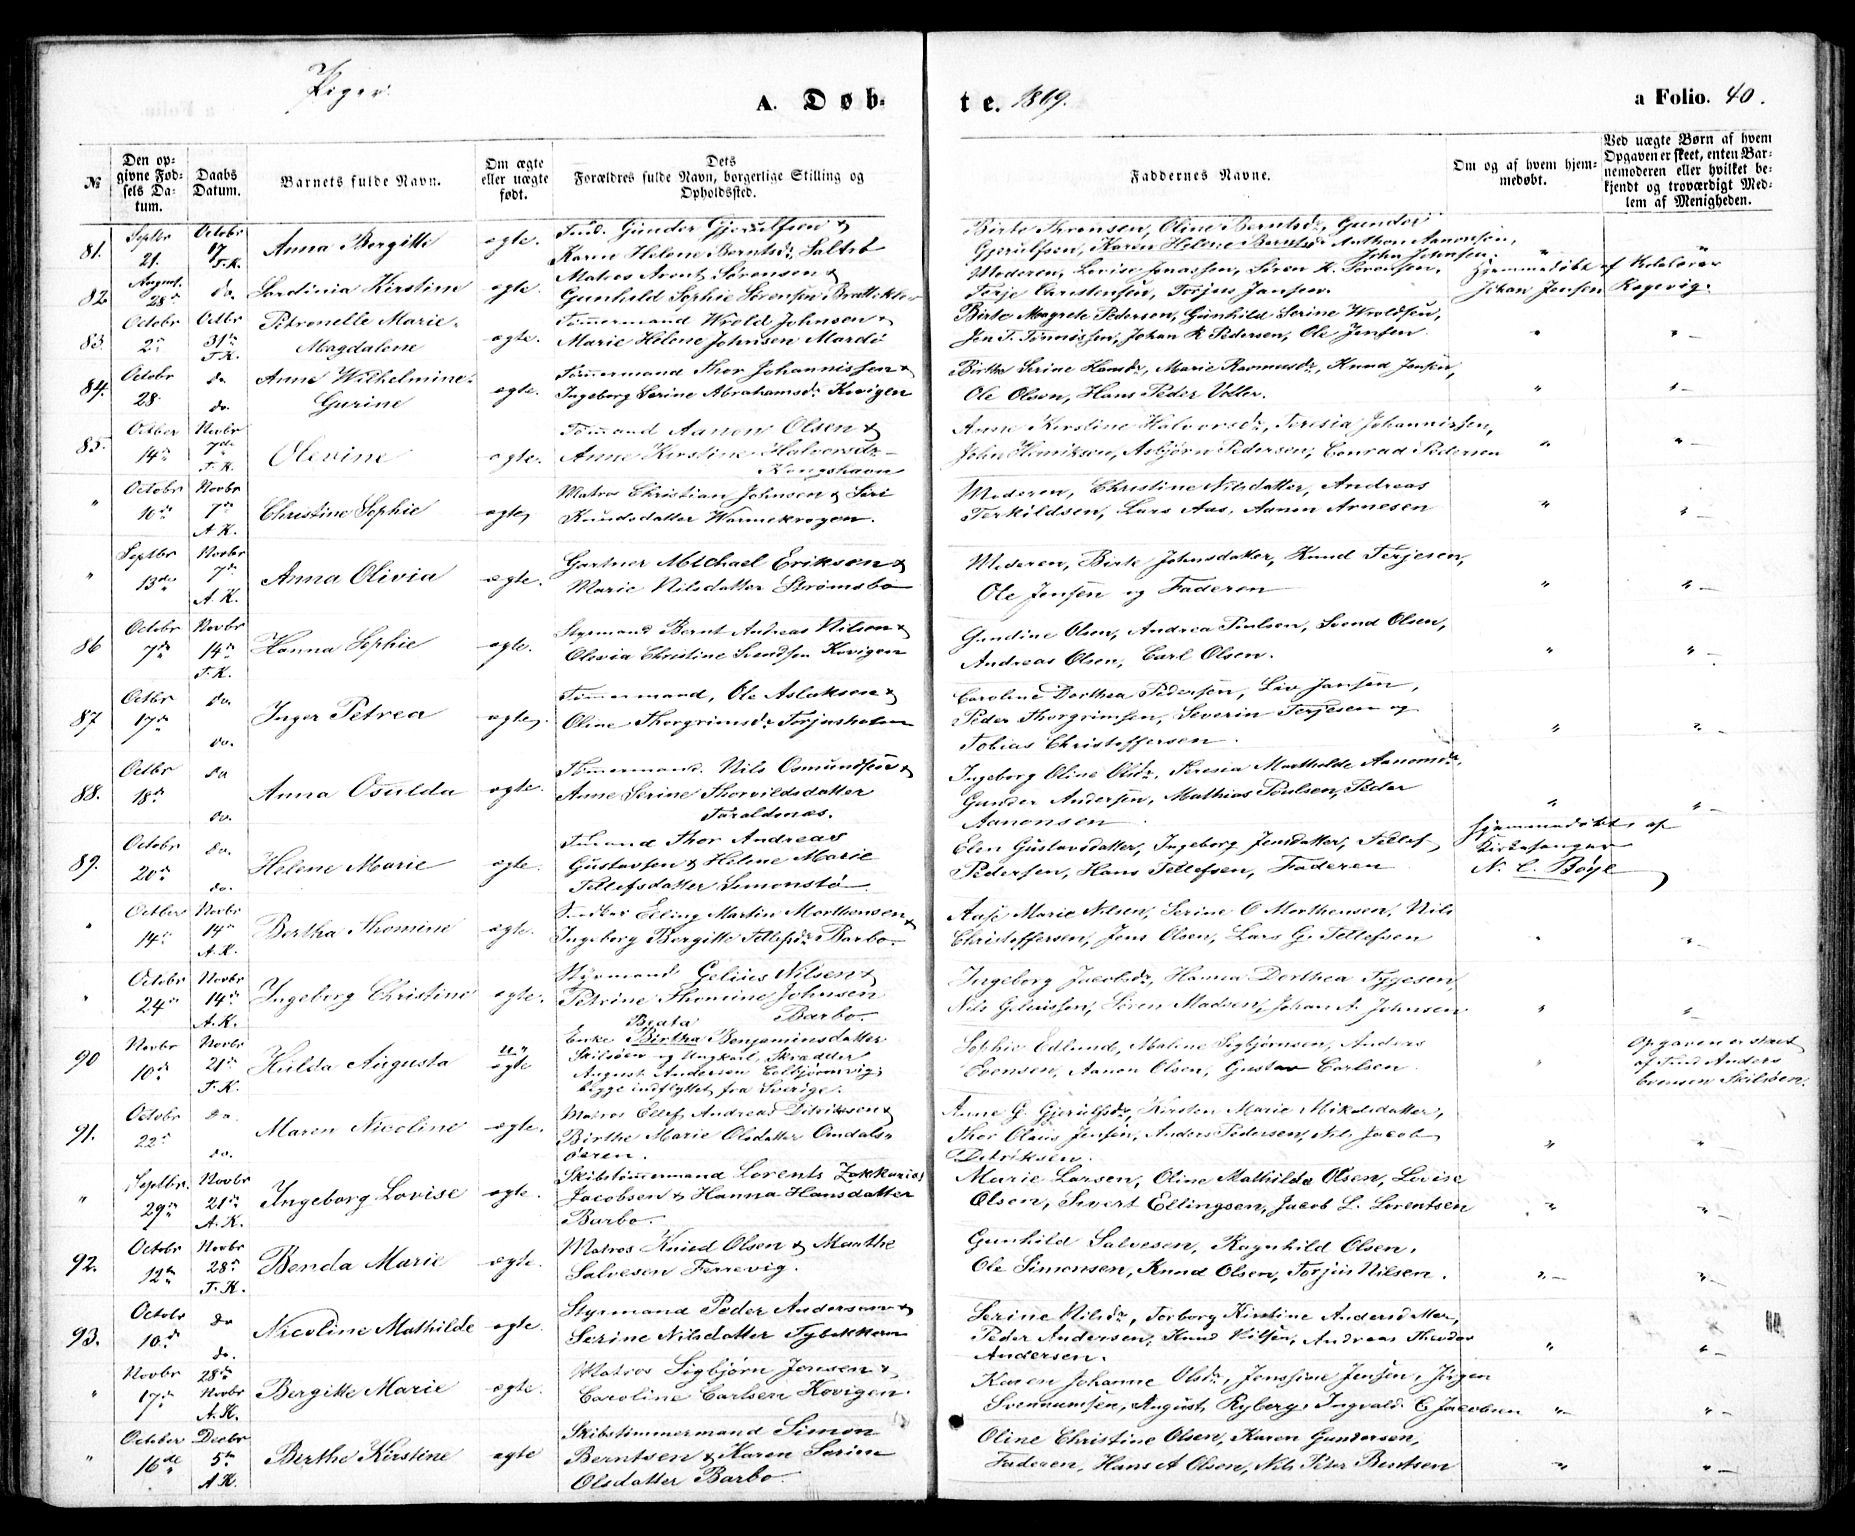 Piger.
A. Døb-
te. 1869.
a Folio. 40.
№
Den op-
givne Fød-
sels Da-
tum.
Daabs
Datum.
Barnets fulde Navn.
Om ægte
eller uægte
født.
Dets
Forældres fulde Navn, borgerlige Stilling og
Opholdssted.
Faddernes Navne.
Om og af hvem hjem-
medøbt.
Ved uægte Børn af hvem
Opgaven er skeet, enten Bar-
nemoderen eller hvilket be-
kjendt og troværdigt Med-
lem af Menigheden.
81. Septbr 21. Octobr 17 T.K. Anna Bergitte ægte.
Gunder Gjerulfsen &
Karen Helene Berntsdr Saltrö
Birte Thronsen, Oline Berntsdr, Gunder
Gjerulfsen, Karen Helene Berntsdr Anthon Aanonsen,
John Johnsen.
82 August 28de do. Sardinia Kirstine ægte.
Matros Arent Sörensen &
Gunhild Sophie Sörensen Brattekler
Moderen, Lovise Jonassen, Sören K. Sörensen,
Terje Christensen, Torjus Jansen.
Hjemmedöbt af
Johan Jensen Kogevig.
83. Octobr 2den Octbr 31te T.K. Petronelle Marie
Magdalene ægte.
Tömmermand Wrold Johnsen &
Marie Helene Johnsen Mardö
Birte Magrete Pedersen, Gunhild Serine Wroldsen,
Jen T. Tönnissen, Johan K Pedersen, Ole Jensen
84. Octobr 28 do do. Anne Wilhelmine
Gurine ægte.
Tömmermand Thor Johannissen &
Ingeborg Serine Abrahamsdr Kovigen
Birthe Serine Hansdr, Marie Rasmusdr, Knud Jensen,
Ole Olsen, Hans Peder
85. Octber 14de Novbr 7de T.K. Olevine ægte.
Tömmand Aanon Olsen &
Anne Kirstine Halvorsdr
Kongshavn
Anne Kirstine Halvorsdr, Teresia Johannissen,
John Henriksen, Asbjörn Pedersen, Conrad Pedersen
" Octobr 16de Novbr 7de A.K. Christine Sophie ægte,
Matros Christian Johnsen & Siri
Knudsdatter Warmekrogen.
Moderen, Christine Nilsdatter, Andreas
Terkildsen, Lars Aas, Aanon Arnesen
" Septbr 13de Novbr 7de A.K. Anna Olivia ægte.
Gartner Michael Eriksen &
Marie Nilsdatter Strömsbö
Moderen, Birte Johnsdatter, Knud Terjesen,
Ole Jensen og Faderen
86 Octobr 7de Novbr 14de T.K. Hanna Sophie ægte.
Styrmand Bernt Andreas Nilsen &
Olevia Christine Svendsen Kovigen
Gundine Olsen, Andrea Poulsen, Svend Olsen,
Andreas Olsen, Carl Olsen.
87 Octbr 17de do. do. Inger Petrea ægte,
Tömmermand, Ole Aslaksen &
Oline Thorgrimsdr Torjusholm
Caroline Dorthea Pedersen, Liv Jansen,
Peder Thorgrimsen, Severin Terjesen og
Tobias Christoffersen.
88. Octbr 18de do do. Anna Osulda ægte.
Tömmermand. Nils Osmundsen &
Anne Serine Thorvildsdatter
Taraldsnæs.
Ingeborg Oline Olsdr, Teresia Mathilde Aanonsdr,
Gunder Andersen, Mathias Poulsen, Peder
Aanonsen.
89. Octobr 20de do. do. Helene Marie ægte.
Thor Andreas
Gustavsen & Helene Marie
Tellefsdatter Simonstö
Elen Gustavsdatter, Ingeborg Jensdatter, Tellef
Pedersen, Hans Tellefsen, Faderen
Hjemmedöbt, af
Kirkesanger
N. C. Böye
" Octber 14de Novbr 14de A.K. Bertha Thomine ægte.
Elling Martin Mortensen &
Ingeborg Bergitte Tellefsdr Barbo
Aase Marie Nilsen, Serine O Morthensen, Nils
Christoffersen, Jens Olsen, Lars G. Tellefsen
" Octobr 24de Novbr 14de A.K. Ingeborg Christine ægte.
Styrmand Gelius Nilsen &
Petrine Thomine Johnsen
Barbo.
Ingeborg Jacobsdr, Hanna Dorthea Tygesen,
Nils Geliussen, Sören Madsen, Johan A. Johnsen
90 Novbr 10de Novbr 21de T.K. Hulda Augusta u-ægte
Beata
Enke Birtha Benjaminsdatter
Skilsöen og Ungkarl, Skrædder
August Andersen
begge indflyttet fra Sverige.
Sophie Edlund, Maline Sigbjörnsen, Anders
Evensen, Aanon Olsen, Gustav Carlsen.
Opgaven er skeet
af Anders
Evensen Skilsöen.
91. Octobr 22de do. do. Maren Nicoline ægte.
Matros Ellef Andreas Ditriksen &
Birthe Marie Olsdatter Omdals-
öeren.
Anne G. Gjerulfsdr, Kirsten Marie Mikelsdatter,
Thor Olaus Jensen, Anders Pedersen, Nils Jacob
Ditriksen.
" Septbr. 29de Novbr 21de A.K. Ingeborg Lovise ægte.
Skibstömmermand Lorents Zakkarias
Jacobsen & Hanna Hansdatter
Barbo.
Marie Larsen, Oline Mathilde Olsen, Lovise
Olsen, Sivert Ellingsen, Jacob L. Lorentsen
92. Octobr 12te Novbr 28de T.K. Benda Marie ægte.
Matros Knud Olsen & Marthe
Salvesen Terrevig.
Gunhild Salvesen, Ragnhild Olsen,
Ole Simonsen, Knud Olsen, Torjus Nilsen.
93. Octobr 10de do do. Nicoline Mathilde ægte.
Styrmand Peder Andersen &
Serine Nilsdatter Tybakken
Serine Nilsdr, Torborg Kirstine Andersdatter,
Peder Andersen, Knud Nilsen, Andreas Theodor
Andersen.
" Novbr 17de 28de Novbr A.K. Bergitte Marie ægte.
Matros Sigbjörn Jensen &
Caroline Carlsen Kovigen.
Karen Johanne Olsdr, Jensine Jensen, Jörgen
Svennumsen, August Ryberg, Ingvald C Jacobsen
" October 16de Decbr 5te A.K. Berthe Kirstine ægte
Skibstömmermand Simon
Berntsen & Karen Serine
Olsdatter Barbo.
Oline Christine Olsen, Karen Gundersen,
Faderen, Hans A Olsen, Nils Peter Berntsen